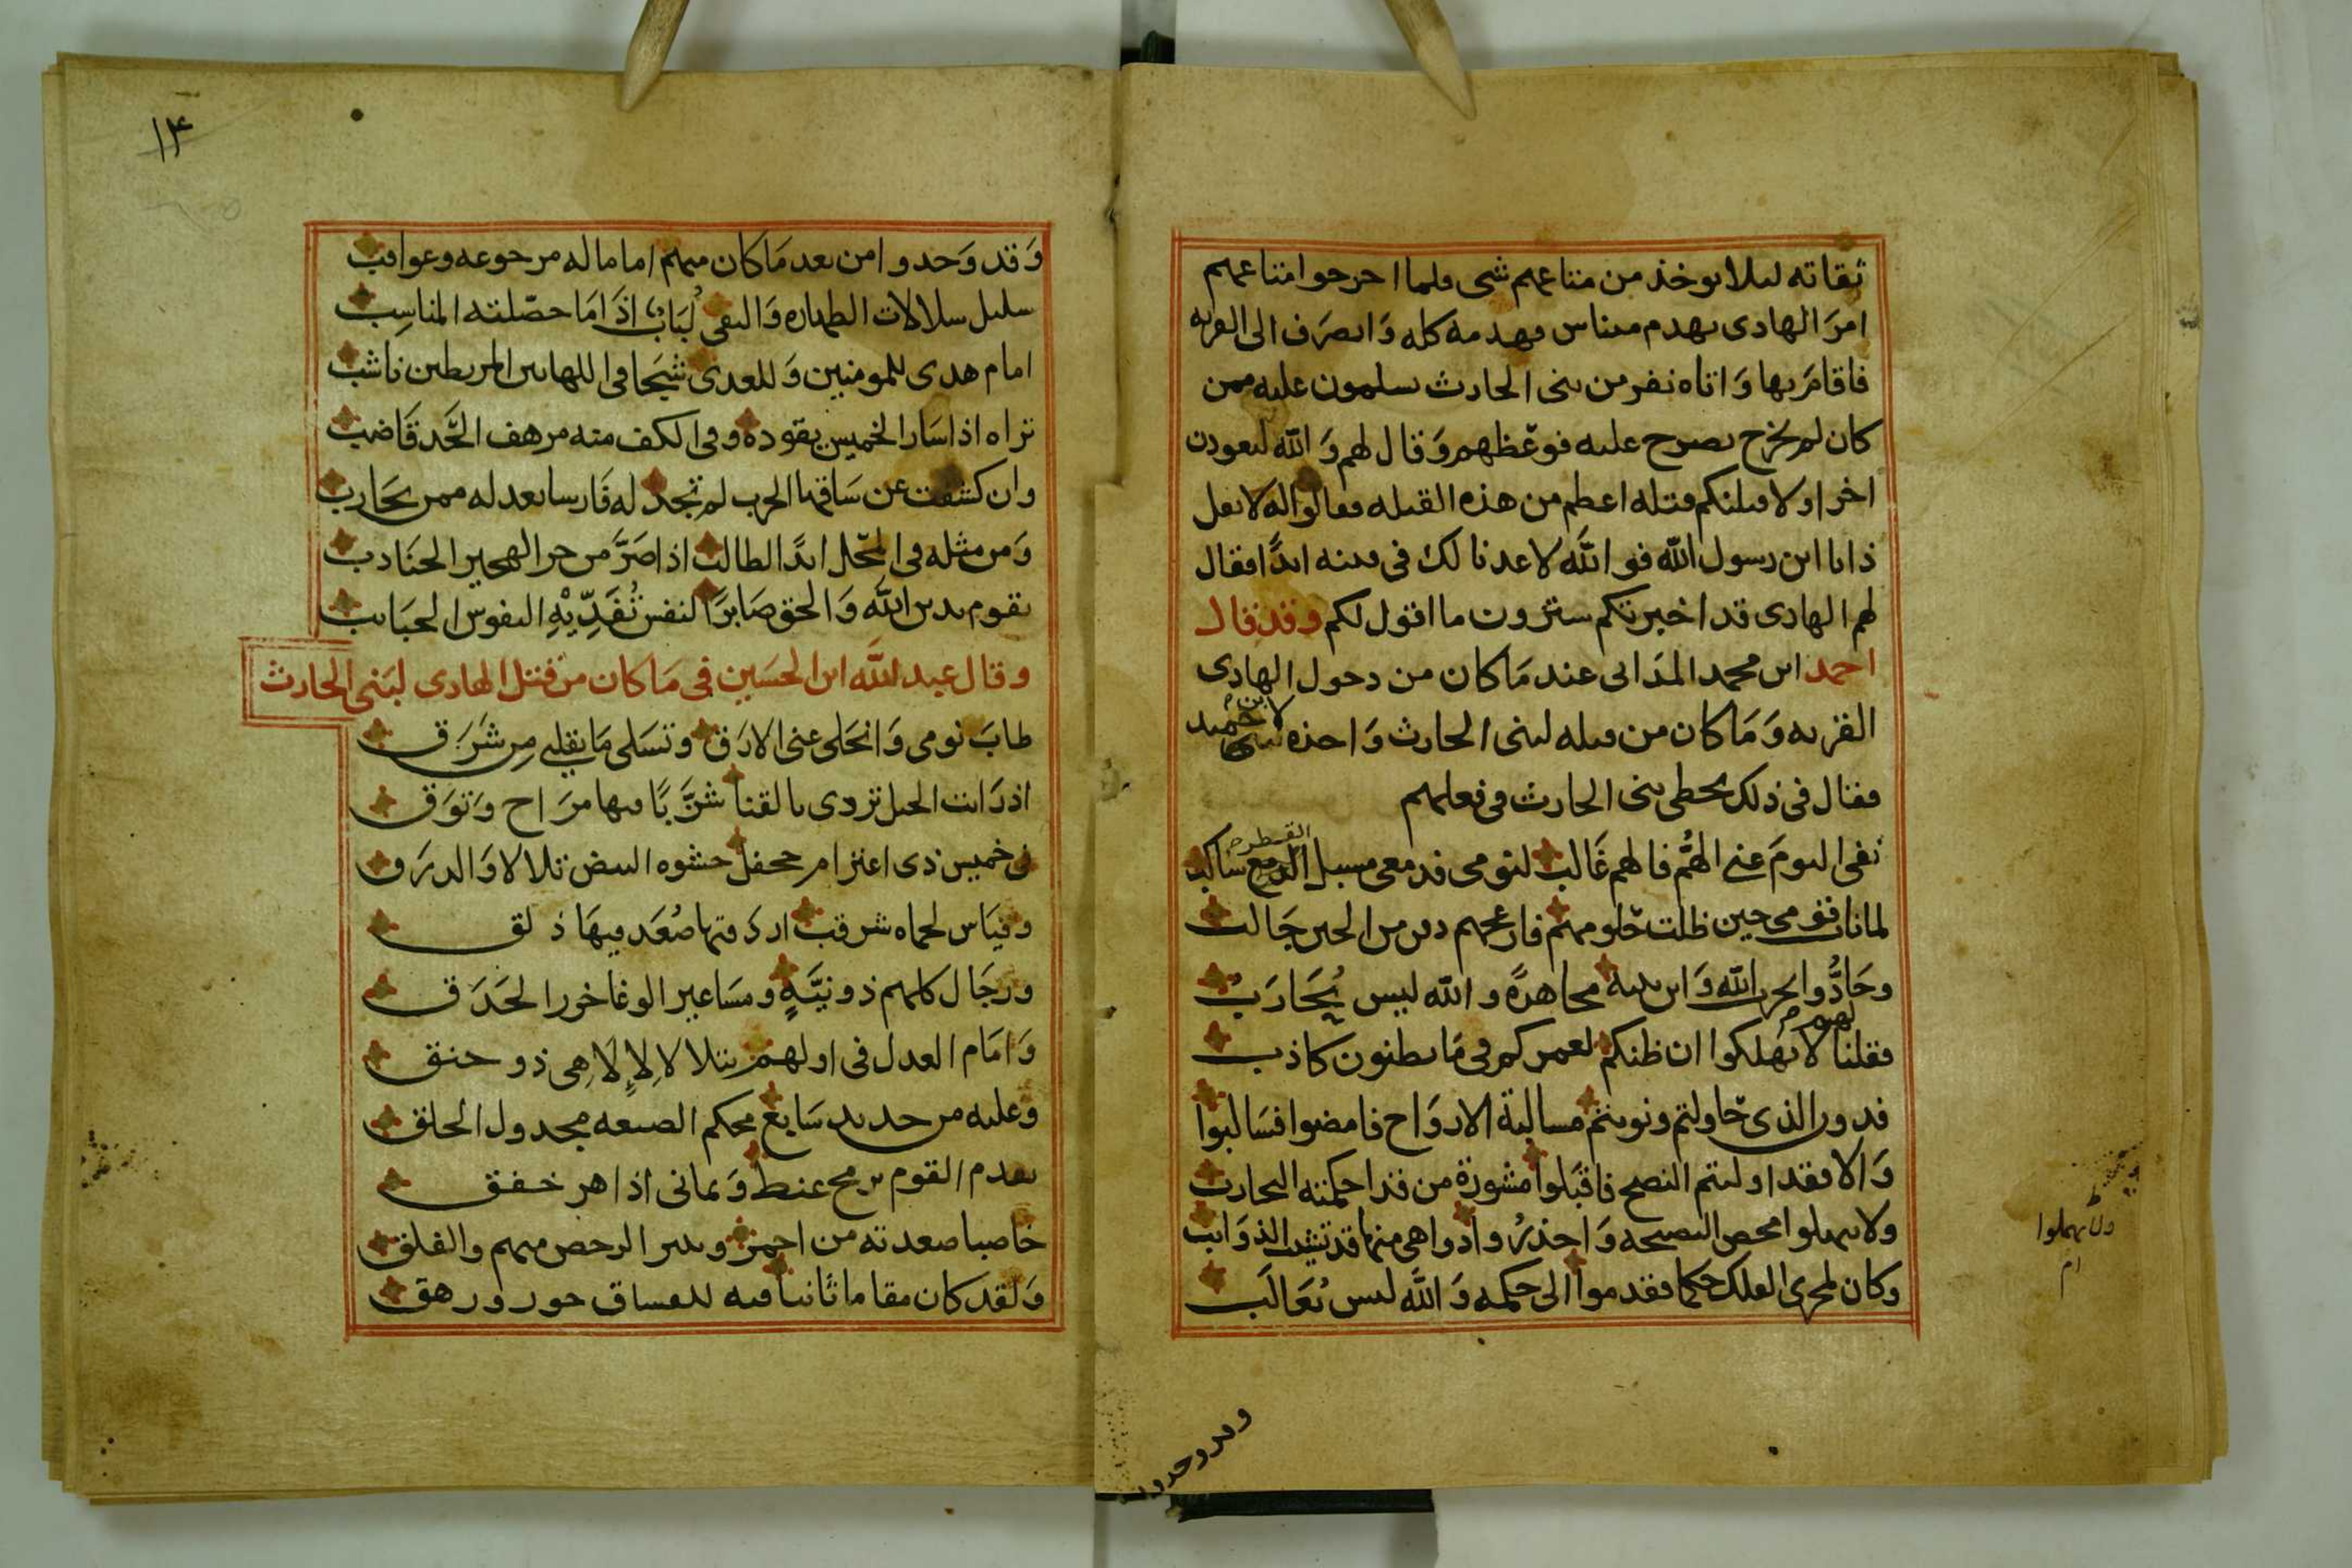 ثقاته لىلا ىوخذ من متاعهم شى فلما اخرجوا متاعهم
امرَ الهادى بهدم مىناس فهدمه كله وَانصَرَف الى القريه
فاقامَ بها وَاتاه نفر من بنى الحارث يسلمون عليه ممن
كان لم يخرج يصرح عليه فوعظهم وَقال لهم وَالله لىعودن
اخرا ولاقتلنكم قتله اعظم من هذه القتله فقالوا له لا تفعل
ذا يا ابن رسول الله فوالله لا عدنا لك فى فتنه ابدًا فقال
لهم الهادى قد اخبرتكم سترون ما اقول لكم وقد قال
احمد ابن محمد المدَانى عند مَا كان من دخول الهادى
القريه وَمَا كان من قتله لبنى الحارث وَاخذه لابن حميد
فقال فى ذلك يخطى بنى الحارث فى فعلهم
نفى النومَ عنى الهَمُّ فالهم غَالب لنومى فدمعى مسبل القطر ساكب
لما نال قومى حين ظلت حلومهم فازعجهم دون من الحىن جَالب
وحَادُّوا لحرب الله وَابن نبيه مجاهدةً والله ليس يُحَارَبُ
فقلنا لهم لا تهلكوا ان ظنكم لعمركم فى مَا تظنون كاذب
فدون الذى حَاولتم ونويتم مسالبة الاروَاح فامضوا فسَالبوا
وَالا فقد اوليتم النصح فاقبَلوا مشورة من قد احكمته التجارب
ولا تهملوا محض النصيحه وَاحذرُوا دواهى منها قد تشيب الذوَائب
وكان لمجرى الفلك حكما فقدموا الى حكمه وَاللَّه ليس يُغَالَب
ولا تهملوا
ام
وقد وجدوا
١٤
وَقد وَجدوا من بعد مَا كان منهم اماما له مرجوعه وعواقب
سليل سلالات الطهاره وَالتقى لُبَابٌ اذَا مَا حصّلته المناسِب
امام هدى للمومنين وَللعدى شَجًا فى اللهَا بين المريطين ناشب
تراه اذا سَار الخميس يقوده وفى الكف منه مرهف الحَّد قَاضب
وان كشفت عن سَاقها الحرب لم تجد له فَارسا يعد له ممن يحَارب
وَمن مثله فى المحَل ابدًا لطالب اذا صَرَّ من حر الهجير الجنَادب
يقوم بدين اللَّه وَالحق صَابرًا لنفس تُفَدِّيْهِ النفوس الحبَايب
وقال عبد اللَّه ابن الحسَين فى مَا كان من قتل الهادى لبَنى الحارث
طابَ نومى وَانجَلى عنى الارَق وتسَلى مَا بقلبى مِن شَرَق
اذ رَايت الخيل تردى بالقنا شزَّبًا فيها مرَاح وَتوَق
فى خميس ذى اعتزام جحفل حشوه البيض تلالا وَالدرَق
وقيَاس لحماه شرقب ادركتها صُعَد فيهَا ذلق
ورجَال كلهم ذو نيَّةٍ ومسَاعير الوغا خور الحَدَق
وَامَام العدل فى اولهم يتلالا لإلاهى ذو حنق
وعليه من حديد سَابغ محكم الصنعه مجدول الحلق
يقدم القوم برمح عنط وَيمانى اذا هز خفق
خاضبا صعدته من احمر وبنىر الرخص منهم والفلق
وَلقد كان مقاما ثانيا فيه للفساق خور ورهق